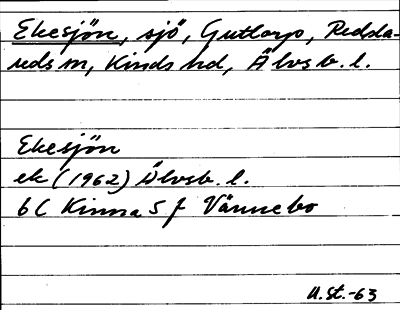 Ekesjön, sjö, Guttarp, Redsla-
reds m, Kinds hd, Älvsb. l.
Ekesjön
ek (1962) Älvsb. l.
6 C Kinna 5 f Vännebo
U.St.-63